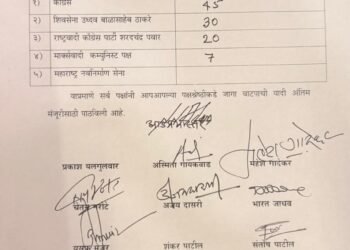 १) काँग्रेस 45
२) शिवसेना उध्दव बाळासाहेब ठाकरे 30
३) राष्ट्रवादी काँग्रेस पार्टी शरदचंद्र पवार 20
४) मार्क्सवादी कम्युनिस्ट पक्ष 7
५) महाराष्ट्र नवनिर्माण सेना
याप्रमाणे सर्व पक्षांनी आपआपल्या पक्षश्रेष्ठींकडे जागा वाटपाची यादी अंतिम
मंजूरीसाठी पाठविली आहे.
प्रकाश यलगुलवार अस्मिता गायकवाड महेश गादेकर
चेतन नरोटे अजय दासरी भारत जाधव
शंकर पाटील संतोष पाटील